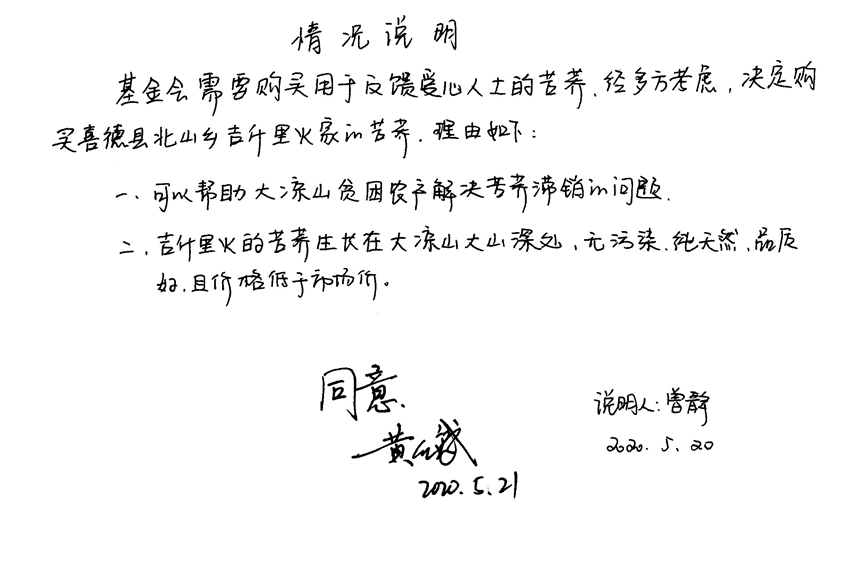 情况说明
基金会需要购买用于反馈爱心人士的苦荞、经多方考虑，决定购
买喜德县北山乡吉什里火家的苦荞．理由如下：
一、可以帮助大凉山贫困农户解决苦荞滞销的问题．
二、吉什里火的苦荞生长在大凉山大山深处、无污染、纯天然、品质
好、且价格低于市场价。
同意．
说明人：曾静
黄
2020．5．20
2020．5．21